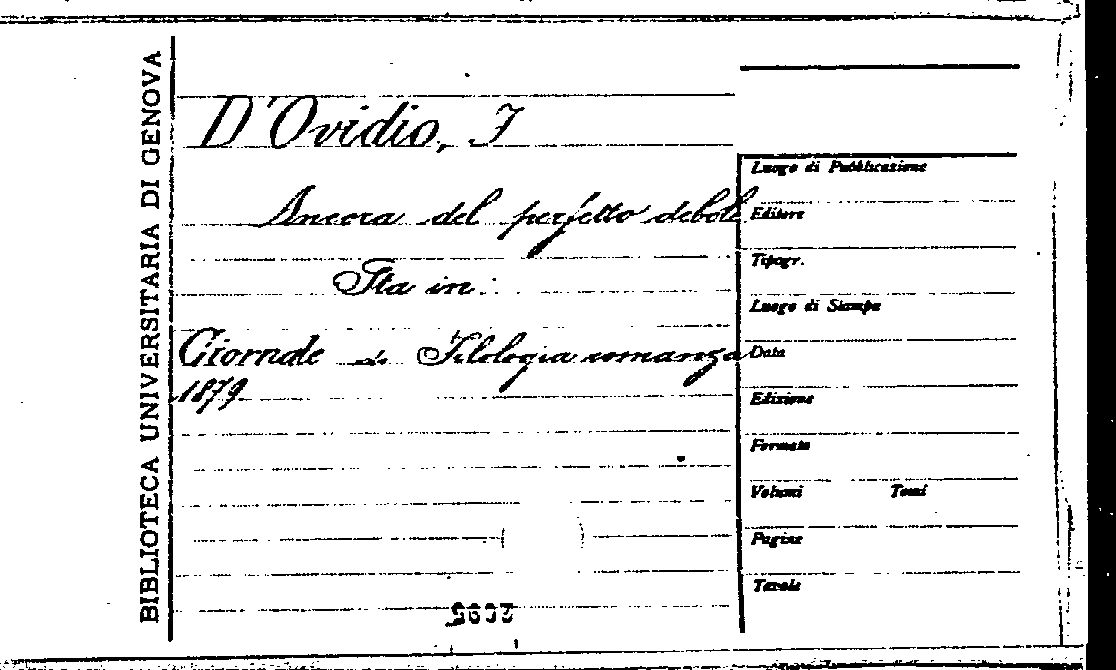 BIBLIOTECA UNIVERSITARIA DI GENOVA
D'Ovidio, F
Ancora del perfetto debole
Sta in:
Giornale di Filologia romanza
1879
Luogo di Pubblicazione
Editore
Tipogr.
Luogo di Stampa
Data
Edizione
Formato
Volumi Tomi
Pagine
Tavole